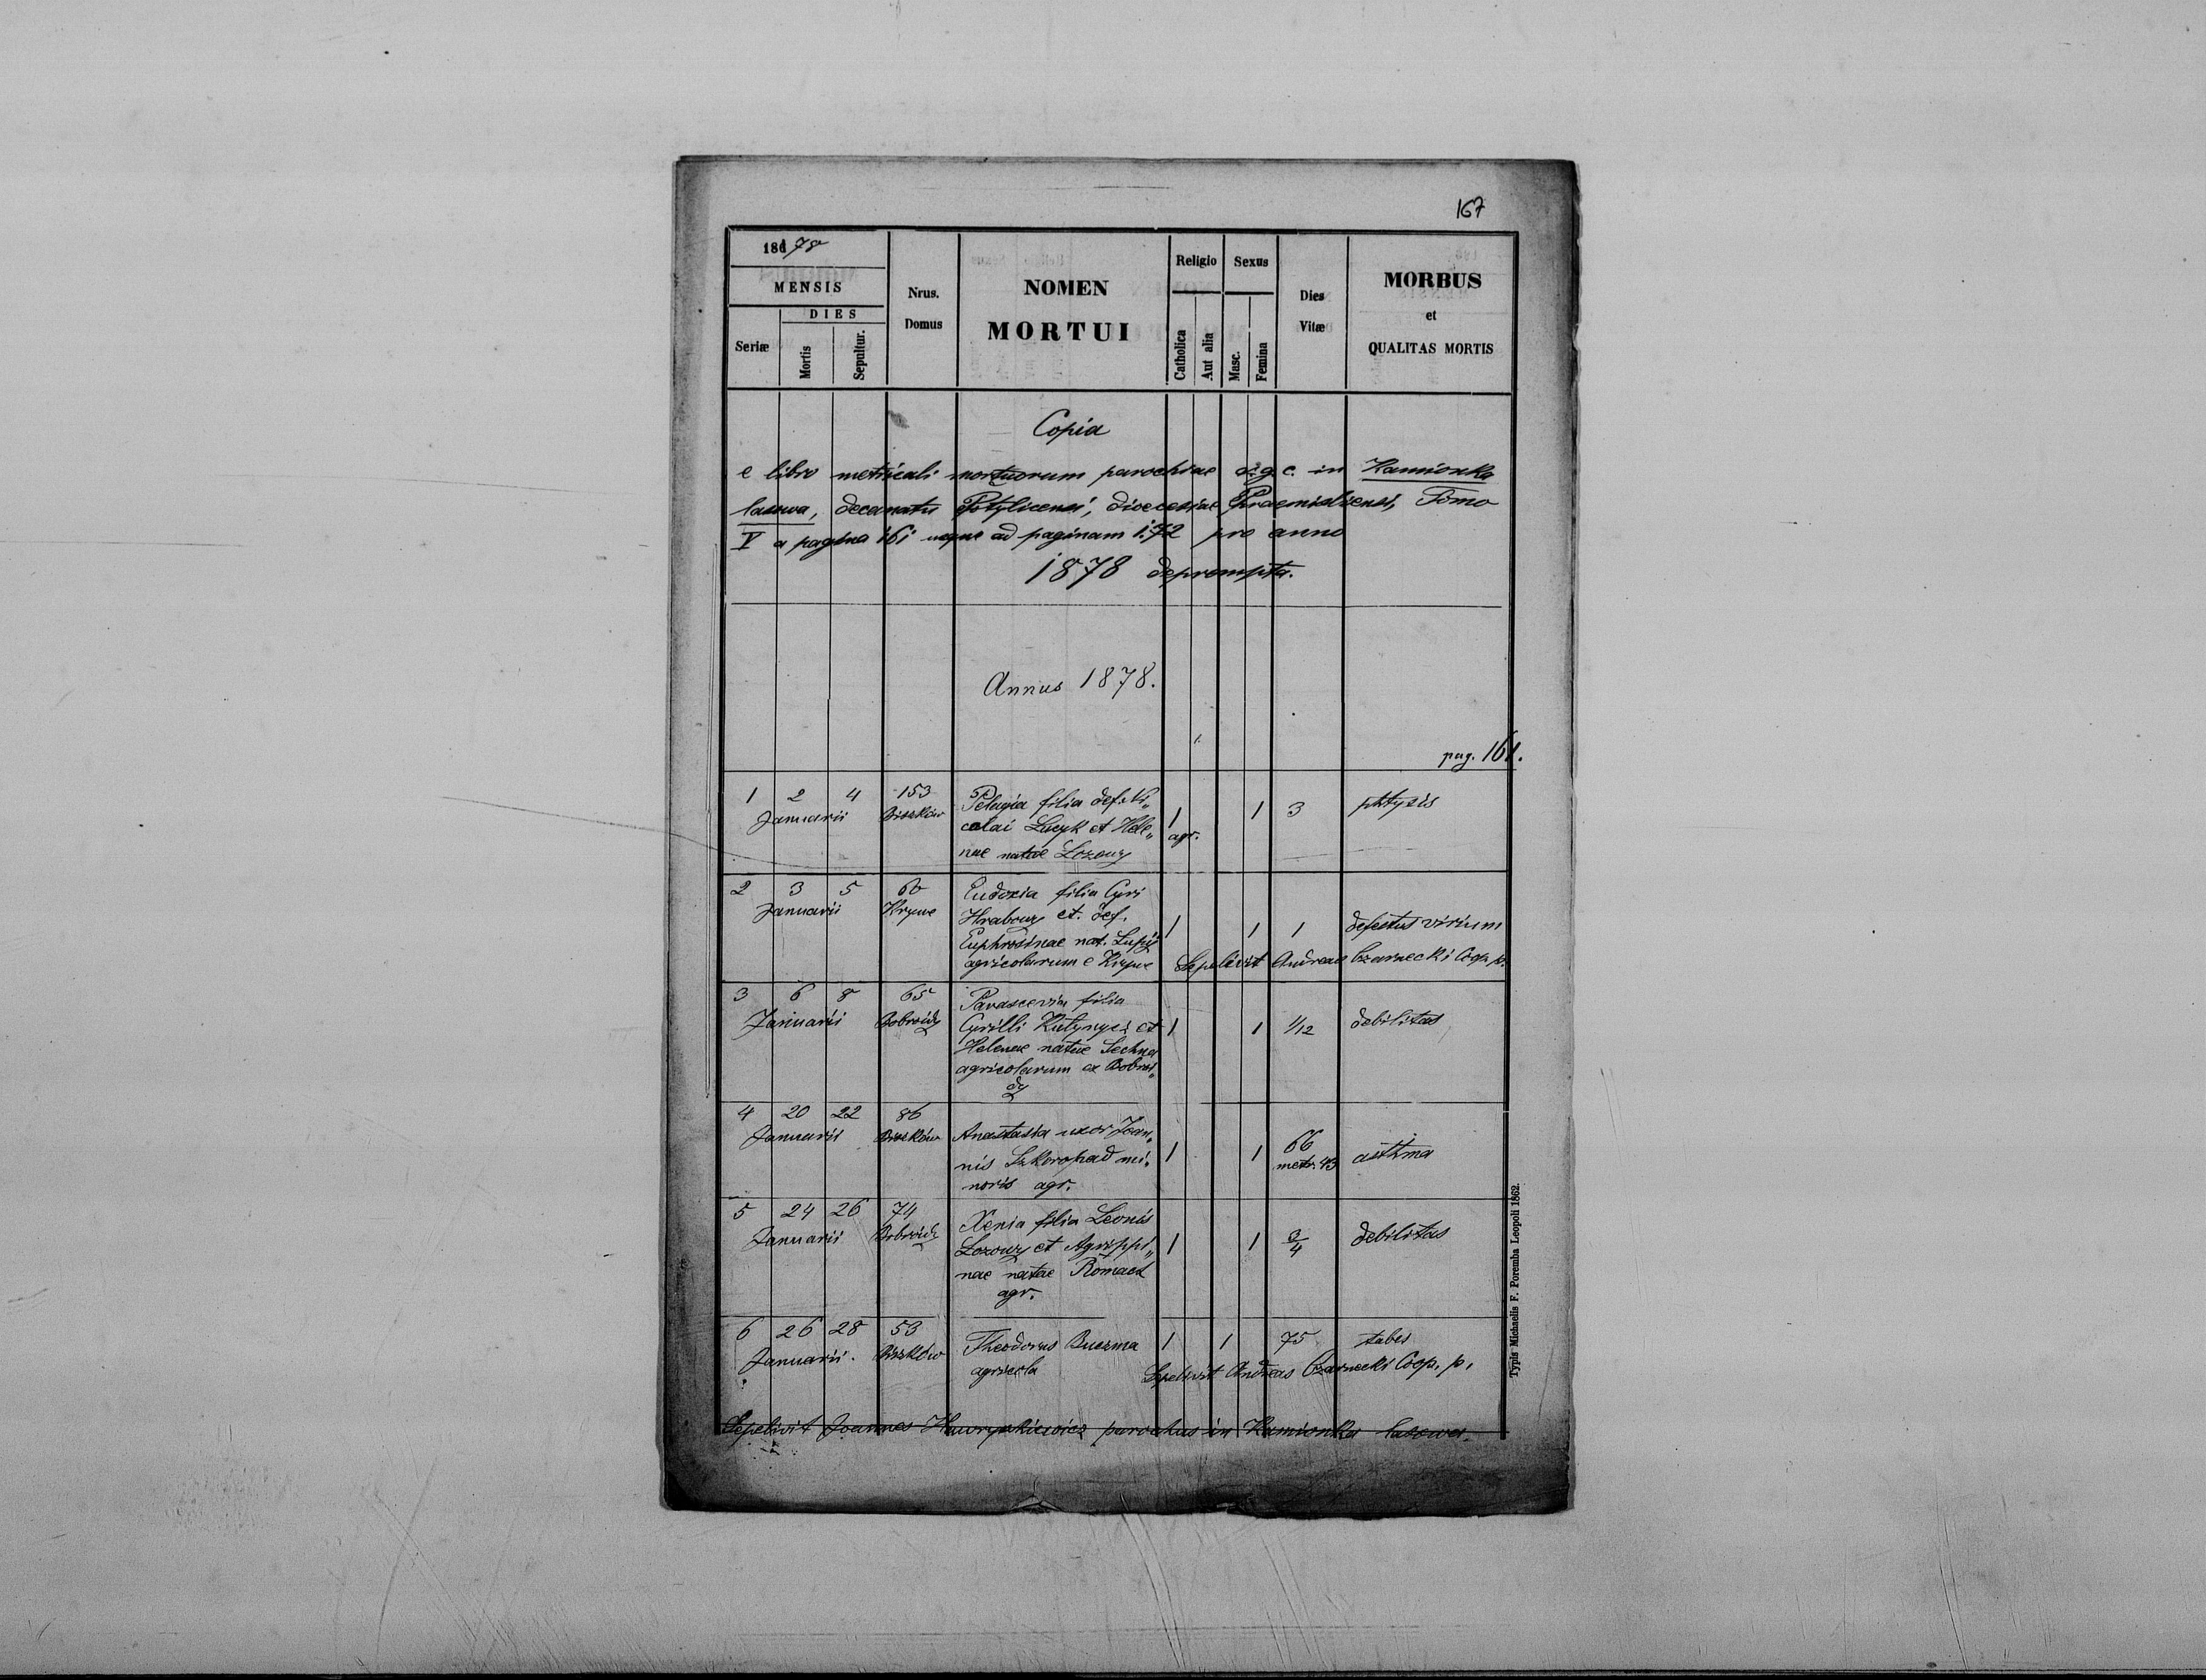 167
18678
MENSIS
DIES
Seriæ
Mortis
Sepultur.
Nrus.
Domus
NOMEN
MORTUI
Religio
Catholica
Aut alia
Sexus
Masc.
Femina
Dies
Vitæ
MORBUS
et
QUALITAS MORTIS
Copia
e libro metricali mortuorum parochiae r. g. c. in Kamionka
lasowa, decanatus Potylicensi, dioecesiae Praemisliensi, Tomo
V a pagina 161 usque ad paginam 172 pro anno
1878 deprompta.
Annus 1878.
pag. 161.
1 2 4 153
Januarii Biszków
Pelagia filia def. Ni„
colai Lucyk et Hele„
nae natae Lozowy
1 agr. 1 3 phtysis
2 3 5 60
Januarii Krywe
Eudoxia filia Cyri
Hrabowy et def.
Euphrosinae nat. Lupij
agricolarum e Krywe
1 1 1 defectus virium
Sepelivit Andreas Czarnecki Coop. p.
3 6 8 65
Januarii Bobroidy
Parascevia filia
Cyrilli Kutynycz et
Helenae natae Sechna
agricolarum ex Bobroi„
dy
1 1 1/12 debilitas
4 20 22 86
Januarii Biszków
Anastasia uxor Joan„
nis Szkoropad mi„
noris agr.
1 1 66 metr. 43 asthma
5 24 26 74
Januarii Bobroidy
Xenia filia Leonis
Lozowy et Agrippi„
nae natae Romach
agr.
1 1 3/4 debilitas
6 26 28 53
Januarii. Biszków
Theodorus Buczma
agricola
1 1 75 tabes
Sepelivit Andreas Czarnecki Coop. p.
Sepelivit Joannes Hawryszkiewicz parochus in Kamionka lasowa.
Typis Michaelis F. Poremba Leopoli 1862.